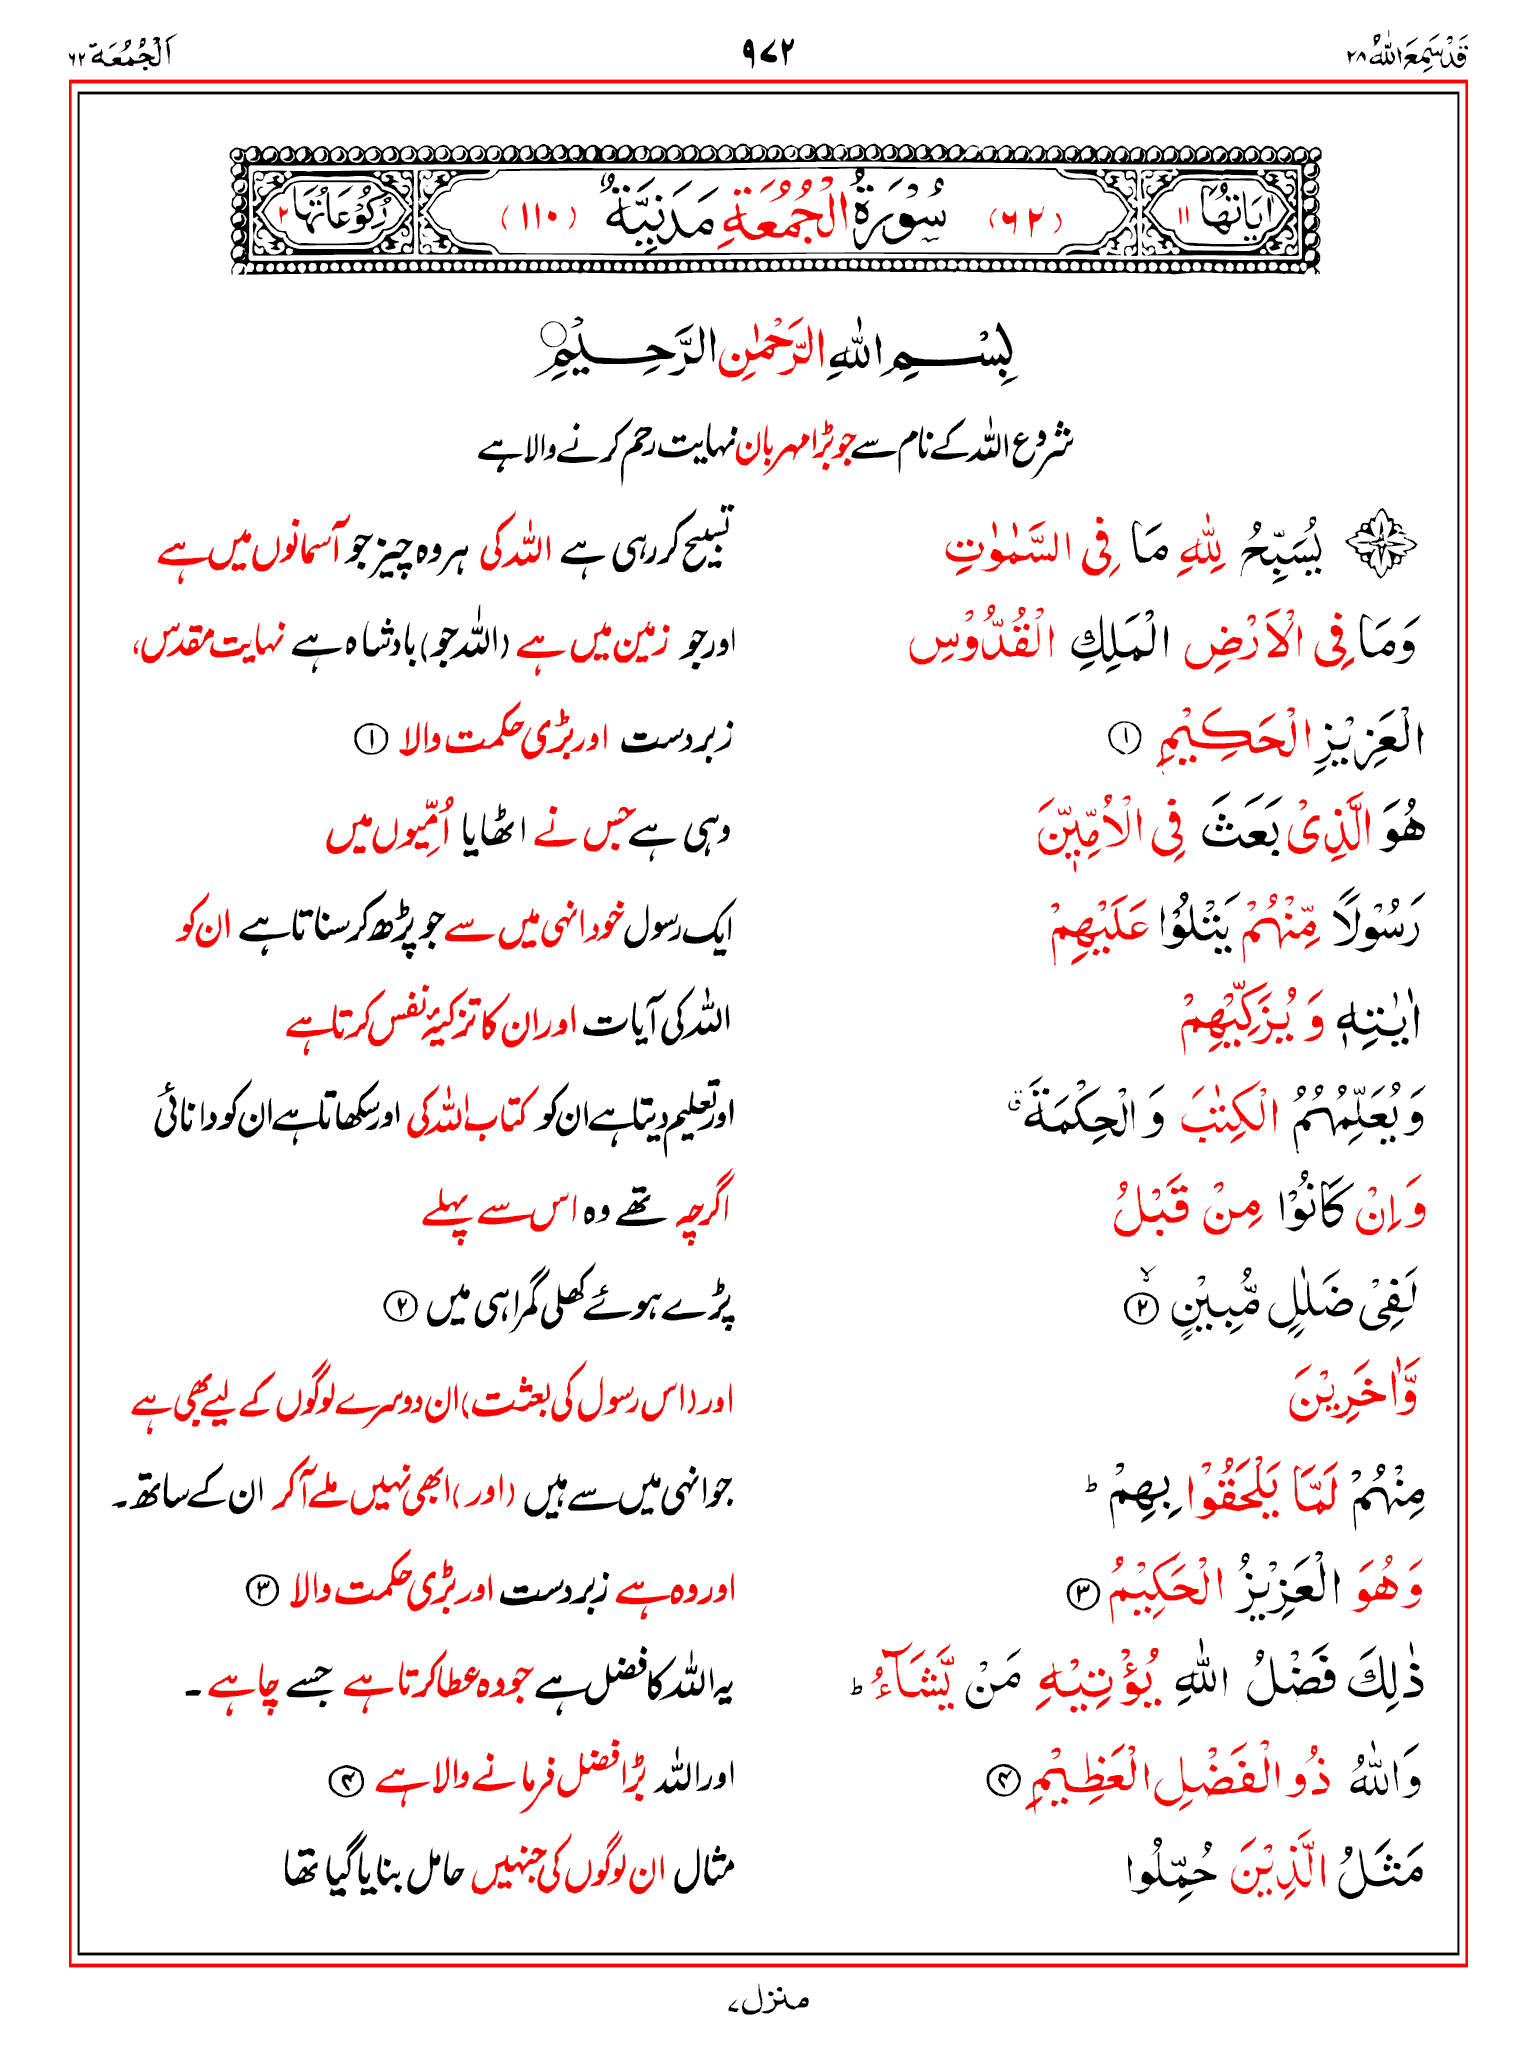 قَدْ سَمِعَ اللّٰهُ ۲۸
۹۷۲
اَلْجُمُعَة ۶۲
اٰيَاتُهَا ۱۱
(۶۲) سُوْرَةُ الْجُمُعَةِ مَدَنِيَّةٌ (۱۱۰)
رُكُوْعَاتُهَا ۲
بِسْمِ اللّٰهِ الرَّحْمٰنِ الرَّحِيْمِ
شروع اللہ کے نام سے جو بڑا مہربان نہایت رحم کرنے والا ہے
يُسَبِّحُ لِلّٰهِ مَا فِى السَّمٰوٰتِ تسبیح کر رہی ہے اللہ کی ہر وہ چیز جو آسمانوں میں ہے
وَمَا فِى الْاَرْضِ الْمَلِكِ الْقُدُّوْسِ اور جو زمین میں ہے (اللہ جو) بادشاہ ہے نہایت مقدس،
الْعَزِيْزِ الْحَكِيْمِ ۱ زبردست اور بڑی حکمت والا ۱
هُوَ الَّذِىْ بَعَثَ فِى الْاُمِّيّٖنَ وہی ہے جس نے اٹھایا اُمِّیوں میں
رَسُوْلًا مِّنْهُمْ يَتْلُوْا عَلَيْهِمْ ایک رسول خود انہی میں سے جو پڑھ کر سناتا ہے ان کو
اٰيٰتِهٖ وَ يُزَكِّيْهِمْ اللہ کی آیات اور ان کا تزکیۂ نفس کرتا ہے
وَ يُعَلِّمُهُمُ الْكِتٰبَ وَ الْحِكْمَةَ ۗ اور تعلیم دیتا ہے ان کو کتاب اللہ کی اور سکھاتا ہے ان کو دانائی
وَ اِنْ كَانُوْا مِنْ قَبْلُ اگرچہ تھے وہ اس سے پہلے
لَفِىْ ضَلٰلٍ مُّبِيْنٍ ۲ پڑے ہوئے کھلی گمراہی میں ۲
وَّاٰخَرِيْنَ اور (اس رسول کی بعثت) ان دوسرے لوگوں کے لیے بھی ہے
مِنْهُمْ لَمَّا يَلْحَقُوْا بِهِمْ ؕ جو انہی میں سے ہیں (اور) ابھی نہیں ملے آ کر ان کے ساتھ۔
وَهُوَ الْعَزِيْزُ الْحَكِيْمُ ۳ اور وہ ہے زبردست اور بڑی حکمت والا ۳
ذٰلِكَ فَضْلُ اللّٰهِ يُؤْتِيْهِ مَنْ يَّشَآءُ ؕ یہ اللہ کا فضل ہے جو وہ عطا کرتا ہے جسے چاہے۔
وَاللّٰهُ ذُو الْفَضْلِ الْعَظِيْمِ ۴ اور اللہ بڑا فضل فرمانے والا ہے ۴
مَثَلُ الَّذِيْنَ حُمِّلُوا مثال ان لوگوں کی جنہیں حامل بنایا گیا تھا
منزل ۷